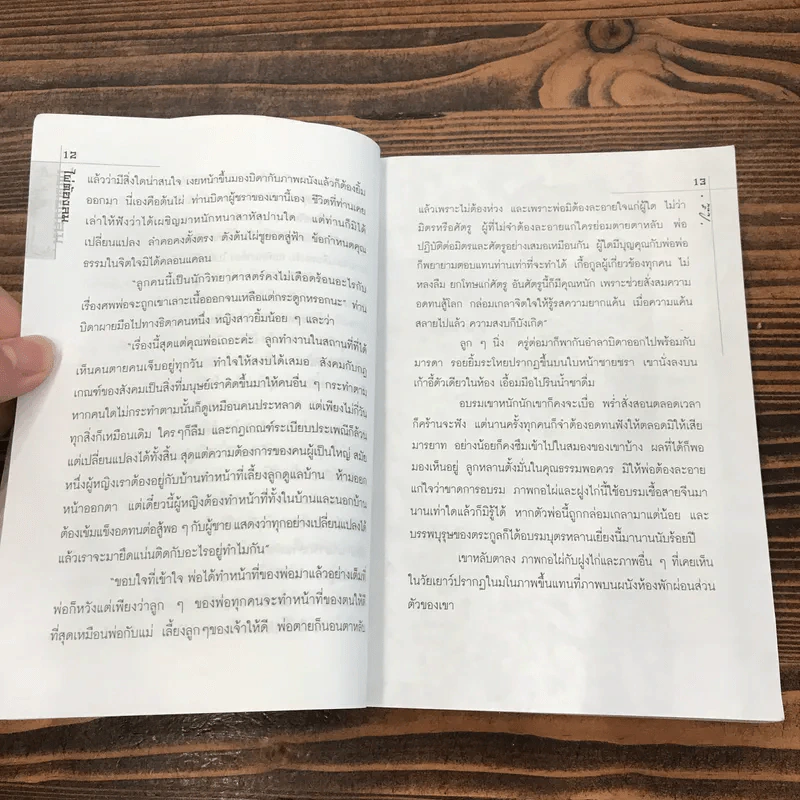 12
ไผ่ต้องลม
แล้วว่ามีสิ่งใดน่าสนใจ เงยหน้าขึ้นมองบิดากับภาพผนังแล้วก็ต้องยิ้ม
ออกมา นี่เองคือต้นไผ่ ท่านบิดาผู้ชราของเขานี้เอง ชีวิตที่ท่านเคย
เล่าให้ฟังว่าได้เผชิญมาหนักหนาสาหัสปานใด แต่ท่านก็มิได้
เปลี่ยนแปลง ลำคอคงตั้งตรง ดังต้นไผ่ชูยอดสู่ฟ้า ข้อกำหนดคุณ
ธรรมในจิตใจมิได้คลอนแคลน
"ลูกคนนี้เป็นนักวิทยาศาสตร์คงไม่เดือดร้อนอะไรกับ
เรื่องศพพ่อจะถูกเขาเลาะเนื้อออกจนเหลือแต่กระดูกหรอกนะ" ท่าน
บิดาผายมือไปทางธิดาคนหนึ่ง หญิงสาวยิ้มน้อย ๆ และว่า
"เรื่องนี้สุดแต่คุณพ่อเถอะค่ะ ลูกทำงานในสถานที่ที่ได้
เห็นคนตายคนเจ็บอยู่ทุกวัน ทำใจให้สงบได้เสมอ สังคมกับกฎ
เกณฑ์ของสังคมเป็นสิ่งที่มนุษย์เราคิดขึ้นมาให้คนอื่น ๆ กระทำตาม
หากคนใดไม่กระทำตามนั้นก็ดูเหมือนคนประหลาด แต่เพียงไม่กี่วัน
ทุกสิ่งก็เหมือนเดิม ใครๆก็ลืม และกฎเกณฑ์ระเบียบประเพณีก็ล้วน
แต่เปลี่ยนแปลงได้ทั้งสิ้น สุดแต่ความต้องการของคนผู้เป็นใหญ่ สมัย
หนึ่งผู้หญิงเราต้องอยู่กับบ้านทำหน้าที่เลี้ยงลูกดูแลบ้าน ห้ามออก
หน้าออกตา แต่เดี๋ยวนี้ผู้หญิงต้องทำหน้าที่ทั้งในบ้านและนอกบ้าน
ต้องเข้มแข็งอดทนต่อสู้พอ ๆ กับผู้ชาย แสดงว่าทุกอย่างเปลี่ยนแปลงได้
แล้วเราจะมายึดแน่นติดกับอะไรอยู่ทำไมกัน"
"ขอบใจที่เข้าใจ พ่อได้ทำหน้าที่ของพ่อมาแล้วอย่างเต็มที่
พ่อก็หวังแต่เพียงว่าลูก ๆ ของพ่อทุกคนจะทำหน้าที่ของตนให้ดี
ที่สุดเหมือนพ่อกับแม่ เลี้ยงลูกๆของเจ้าให้ดี พ่อตายก็นอนตาหลับ
13
แล้วเพราะไม่ต้องห่วง และเพราะพ่อมิต้องละอายใจแก่ผู้ใด ไม่ว่า
มิตรหรือศัตรู ผู้ที่ไม่จำต้องละอายแก่ใครย่อมตายตาหลับ พ่อ
ปฏิบัติต่อมิตรและศัตรูอย่างเสมอเหมือนกัน ผู้ใดมีบุญคุณกับพ่อพ่อ
ก็พยายามตอบแทนท่านเท่าที่จะทำได้ เกื้อกูลผู้เกี่ยวข้องทุกคน ไม่
หลงลืม ยกโทษแก่ศัตรู อันศัตรูนี้ก็มีคุณหนัก เพราะช่วยสั่งสมความ
อดทนสู้โลก กล่อมเกลาจิตใจให้รู้รสความยากแค้น เมื่อความแค้น
สลายไปแล้ว ความสงบก็บังเกิด"
ลูก ๆ นิ่ง ครู่ต่อมาก็พากันอำลาบิดาออกไปพร้อมกับ
มารดา รอยยิ้มระโหยปรากฏขึ้นบนใบหน้าชายชรา เขานั่งลงบน
เก้าอี้ตัวเดียวในห้อง เอื้อมมือไปรินน้ำชาดื่ม
อบรมเขาหนักนักเขาก็คงจะเบื่อ พร่ำสั่งสอนตลอดเวลา
ก็คร้านจะฟัง แต่นานครั้งทุกคนก็จำต้องอดทนฟังให้ตลอดมิให้เสีย
มารยาท อย่างน้อยก็คงซึมเข้าไปในสมองของเขาบ้าง ผลที่ได้ก็พอ
มองเห็นอยู่ ลูกหลานตั้งมั่นในคุณธรรมพอควร มิให้พ่อต้องละอาย
แก่ใจว่าขาดการอบรม ภาพกอไผ่และฝูงไก่นี้ใช้อบรมเชื้อสายจีนมา
นานเท่าใดแล้วก็มิรู้ได้ หากตัวพ่อนี้ถูกกล่อมเกลามาแต่น้อย และ
บรรพบุรุษของตระกูลก็ได้อบรมบุตรหลานเยี่ยงนี้มานานนับร้อยปี
เขาหลับตาลง ภาพกอไผ่กับฝูงไก่และภาพอื่น ๆ ที่เคยเห็น
ในวัยเยาว์ปรากฏในมโนภาพขึ้นแทนที่ภาพบนผนังห้องพักผ่อนส่วน
ตัวของเขา